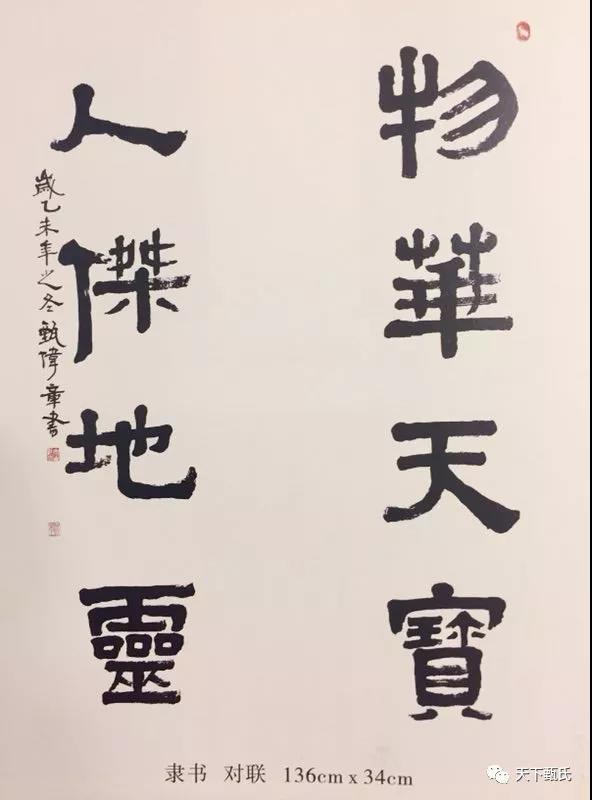 物華天寶
人傑地靈
歲乙未年之冬甄偉章書
隶书 对联 136cm x 34cm
天下甄氏